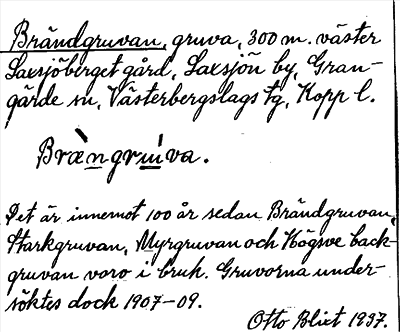 Brändgruvan, gruva, 300 m. väster
Saxsjöberget gård, Saxsjön by, Gran-
gärde sn, Västerbergslags tg, Kopp l.
Bræ̀ngrúva.
Det är innemot 100 år sedan Brändgruvan,
Starkgruvan, Myrgruvan och Högsve back-
gruvan voro i bruk. Gruvorna under-
söktes dock 1907-09.
Otto Blixt 1937.